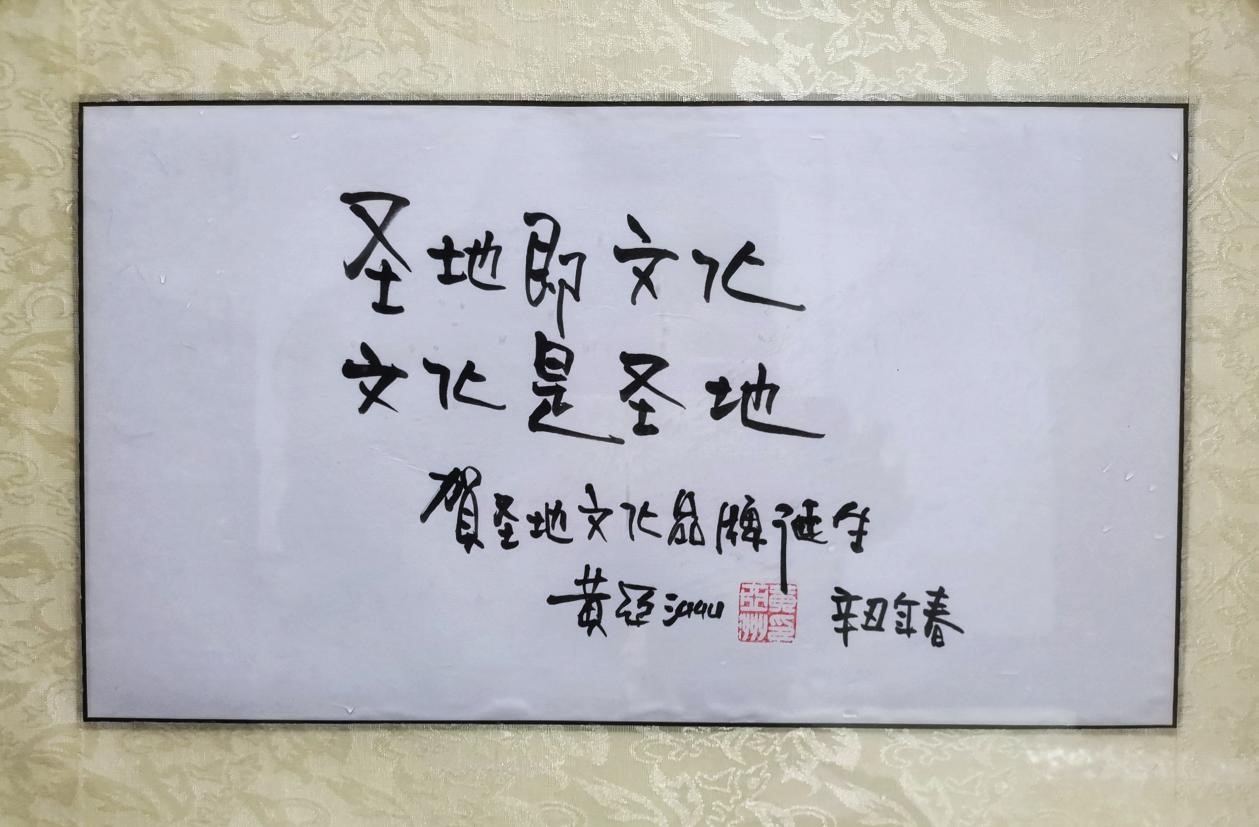 圣地即文化
文化是圣地
贺圣地文化品牌诞生
黄亚洲 辛丑年春
黄亚洲印